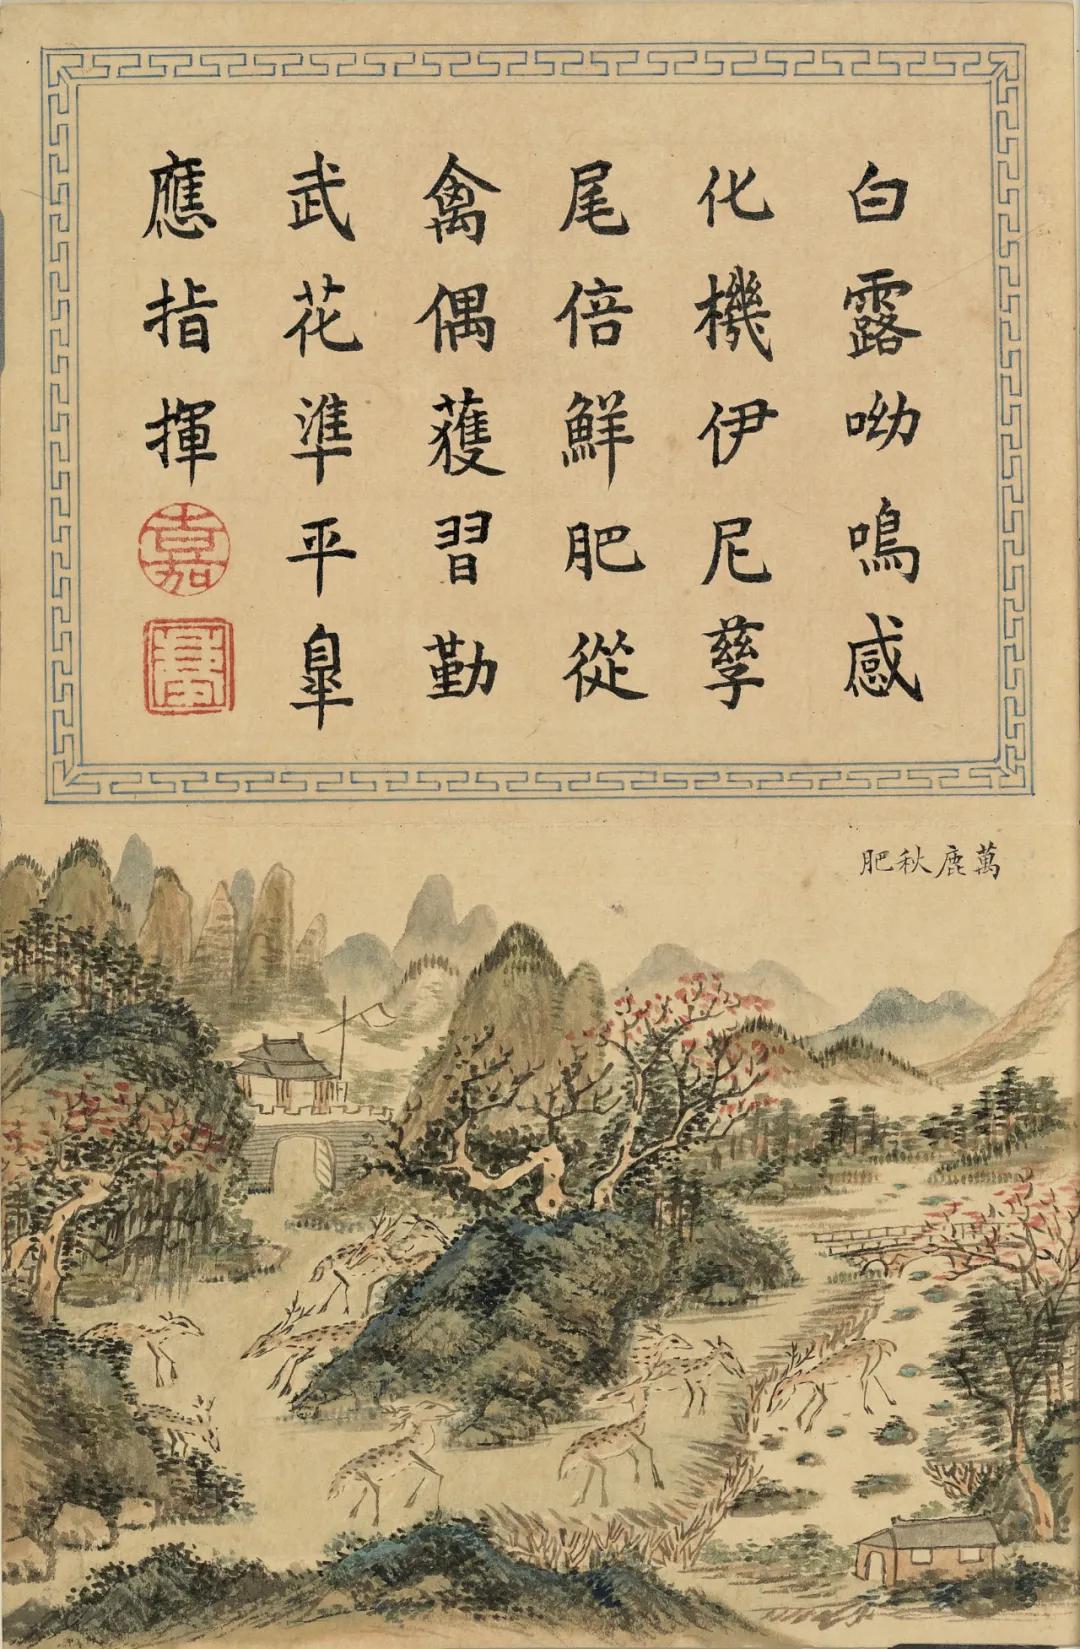 白露呦鳴感
化機伊尼孳
尾倍鮮肥從
禽偶獲習勤
武花準平皐
應指揮
嘉
萬鹿秋肥